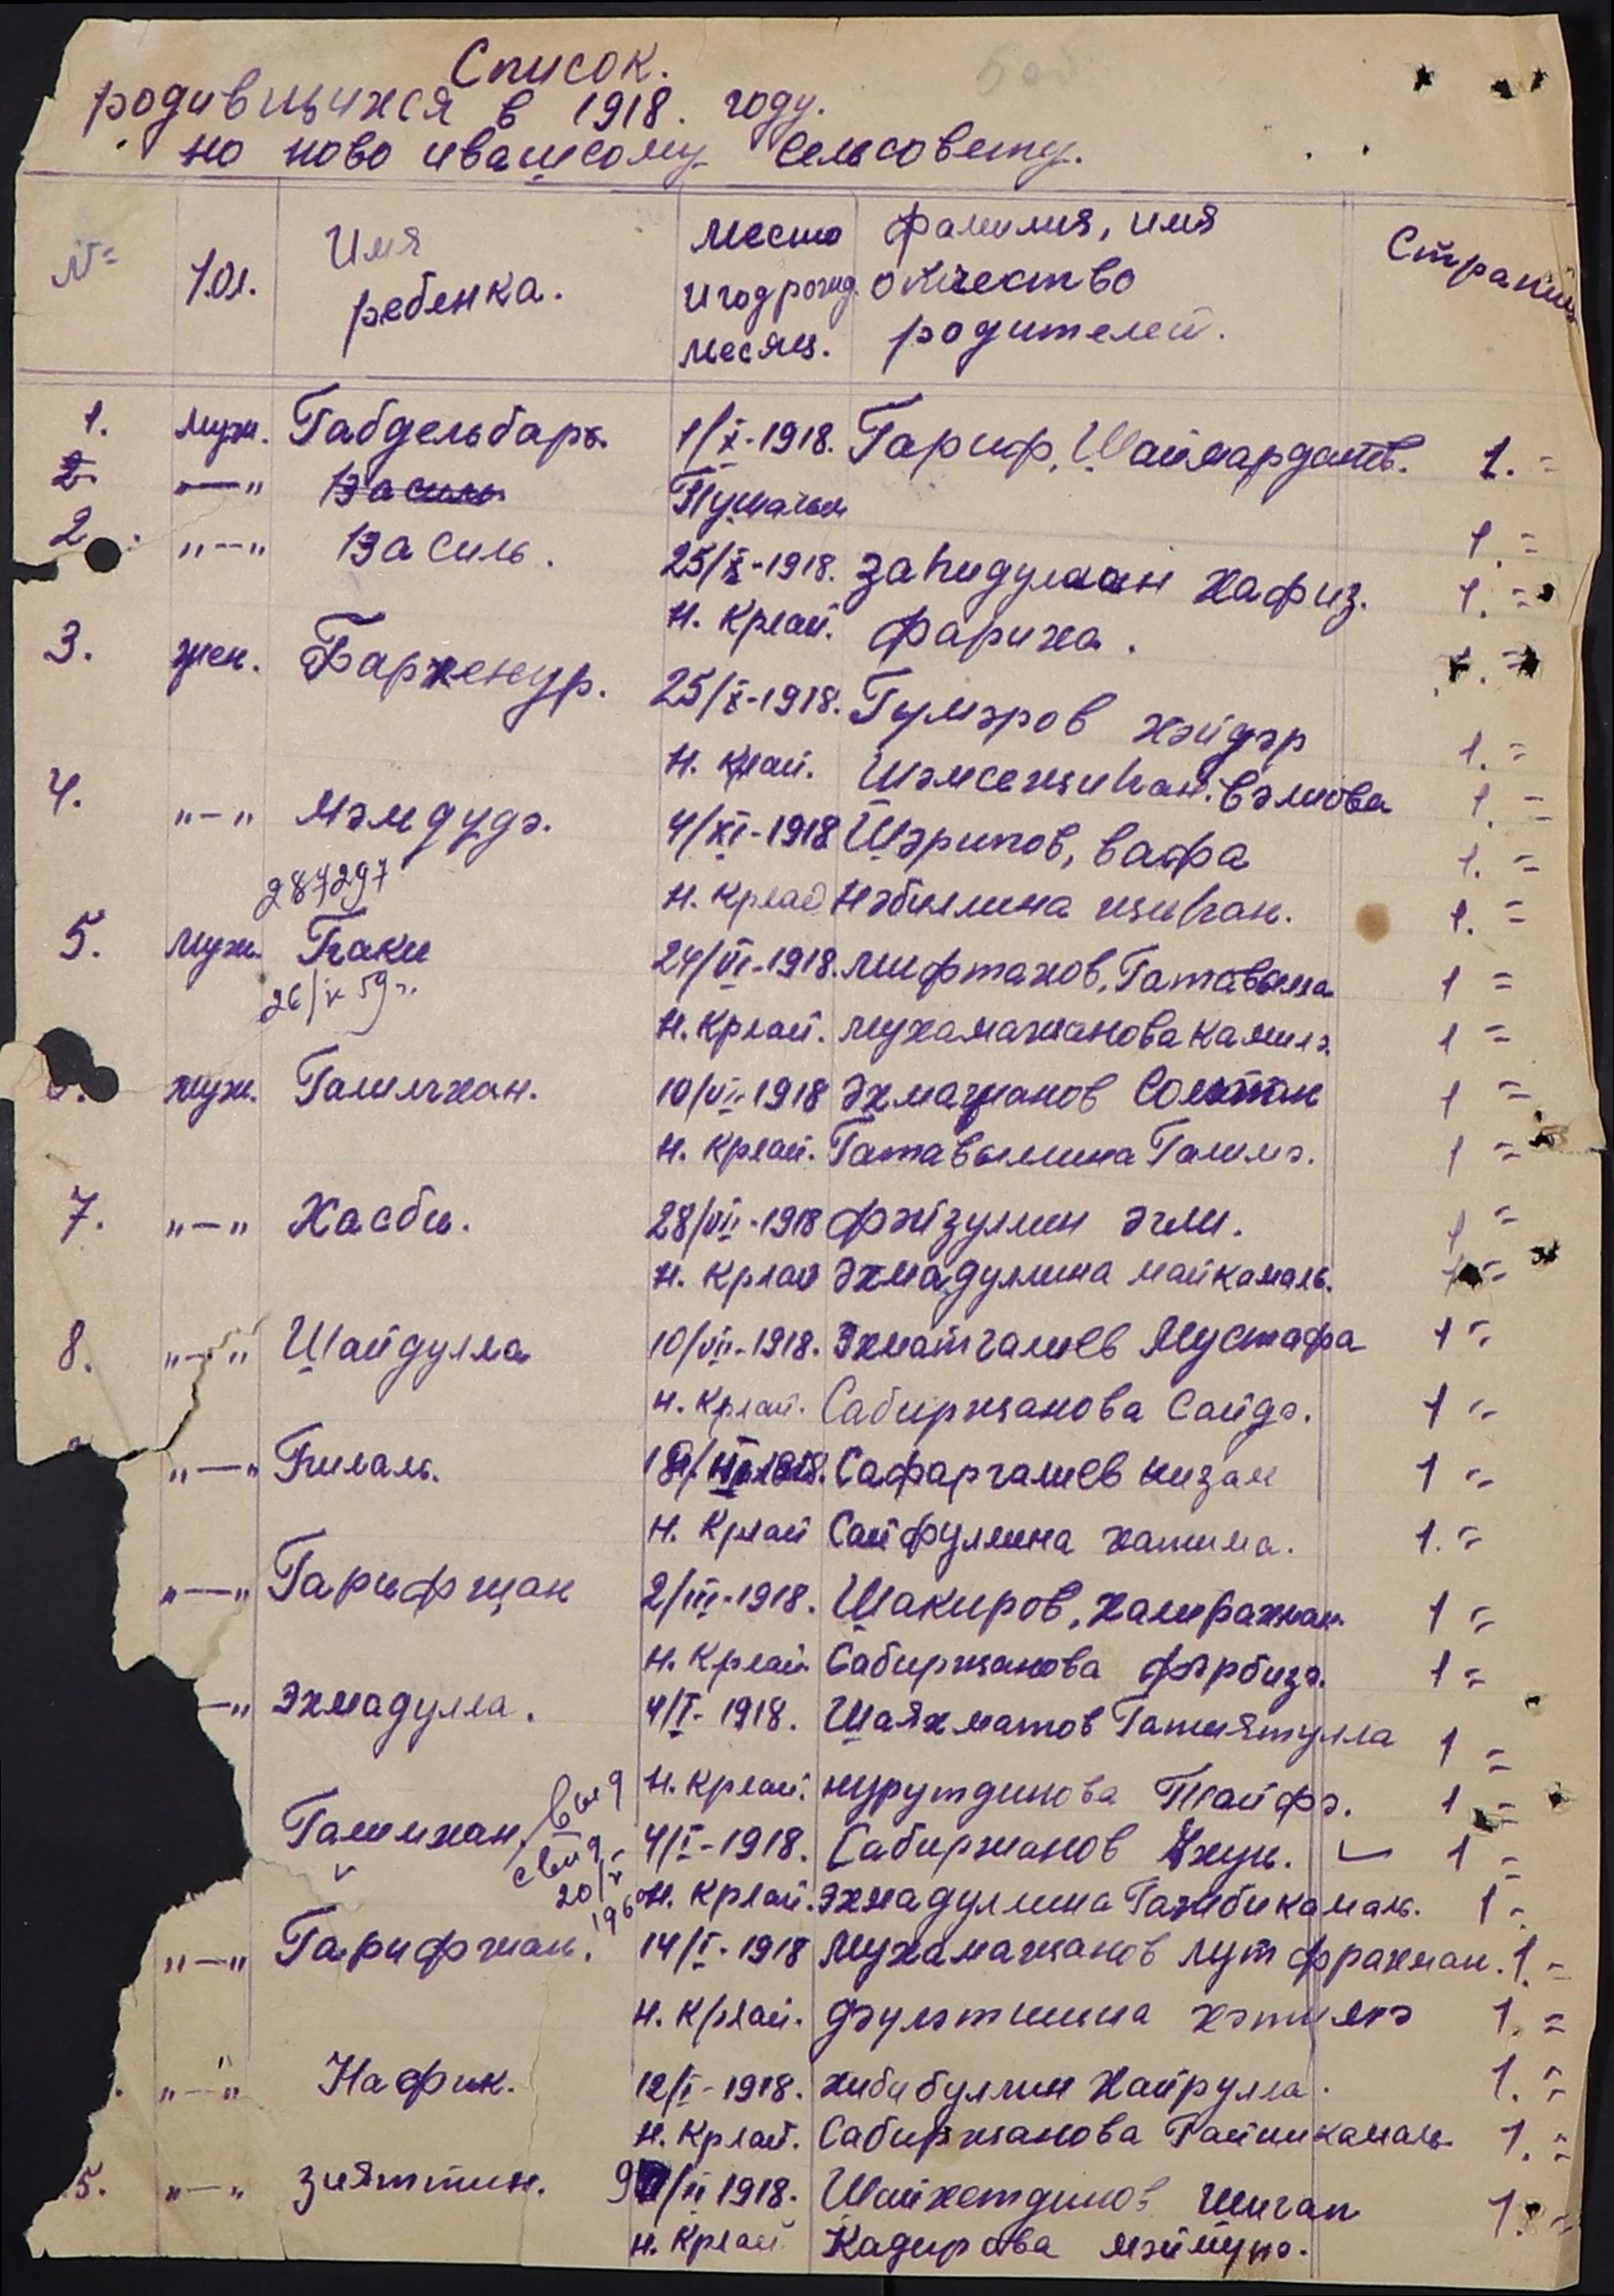 Список.
родивщихся в 1918. году.
но ново иващсому сельсовету.
№= пол. Имя ребенка. место и год рожд. месяц. фамилия, имя отчество родителей. Страниц
1. муж. Габдельбары. 1/X-1918. Гариф, Шаймарданов. 1. =
2. "—" Василь
2. "—" Василь. 1. =
25/X-1918. Заhидуллин Хафиз. 1. =
Н. Крлай. Фариха. 1. =
3. жен. Бархенур. 25/X-1918. Гумэров хэйдэр 1. =
Н. Клай. Шэмсежиhан. Вэлиова 1. =
4. "—" Мэмдудэ. 4/XI-1918 Шэрипов, вафа 1. =
Н. Крлай Нэбиллина жиhан. 1. =
287297
5. муж. Баки 24/VI-1918. Мифтахов, Гатавылла 1 =
26/IX 59 г.
Н. Крлай. Мухамажанова Камилэ. 1 =
6. муж. Галимжан. 10/VI-1918 Эхмажанов 1 =
Н. Крлай. Гатавыллина Галимэ. 1 =
7. "—" Хасби. 28/VII-1918 Фэйзуллин эгли. 1 =
Н. Крлай Эхмадуллина майкамаль. 1 =
8. "—" Шайдулла 10/VII-1918. Эхматгалиев Мустафа 1 =
Н. Крлай. Сабиржанова Сайдэ. 1 =
"—" Билаль. Сафаргалиев низам 1 =
Н. Крлай Сайфуллина хатима. 1. =
"—" Гарифжан 2/III-1918. Шакиров, 1 =
Н. Крлай Сабиржанова Фэрбизэ. 1 =
—" Эхмадулла. 4/I-1918. Шаяхматов Гатиятулла 1 =
Н. Крлай. нурутдинова Тайфэ. 1 =
Галимжан, выд 4/I-1918. Сабиржанов 1 =
свид. 20/V 1960
Н. Крлай. Эхмадуллина Гажбикамаль. 1 =
"—" Гарифжан. 14/I-1918 Мухамажанов лутфрахман. 1. =
Н. Крлай. дэулэтшина 1. =
"—" Нафик. 12/I-1918. хибибуллин Хайрулла. 1. =
Н. Крлай. Сабиржанова Гайникамаль 1. =
5. "—" зияттин. 9/II 1918. Шайхетдинов шиган 1. =
Н. Крлай Кадирова мэймунэ.